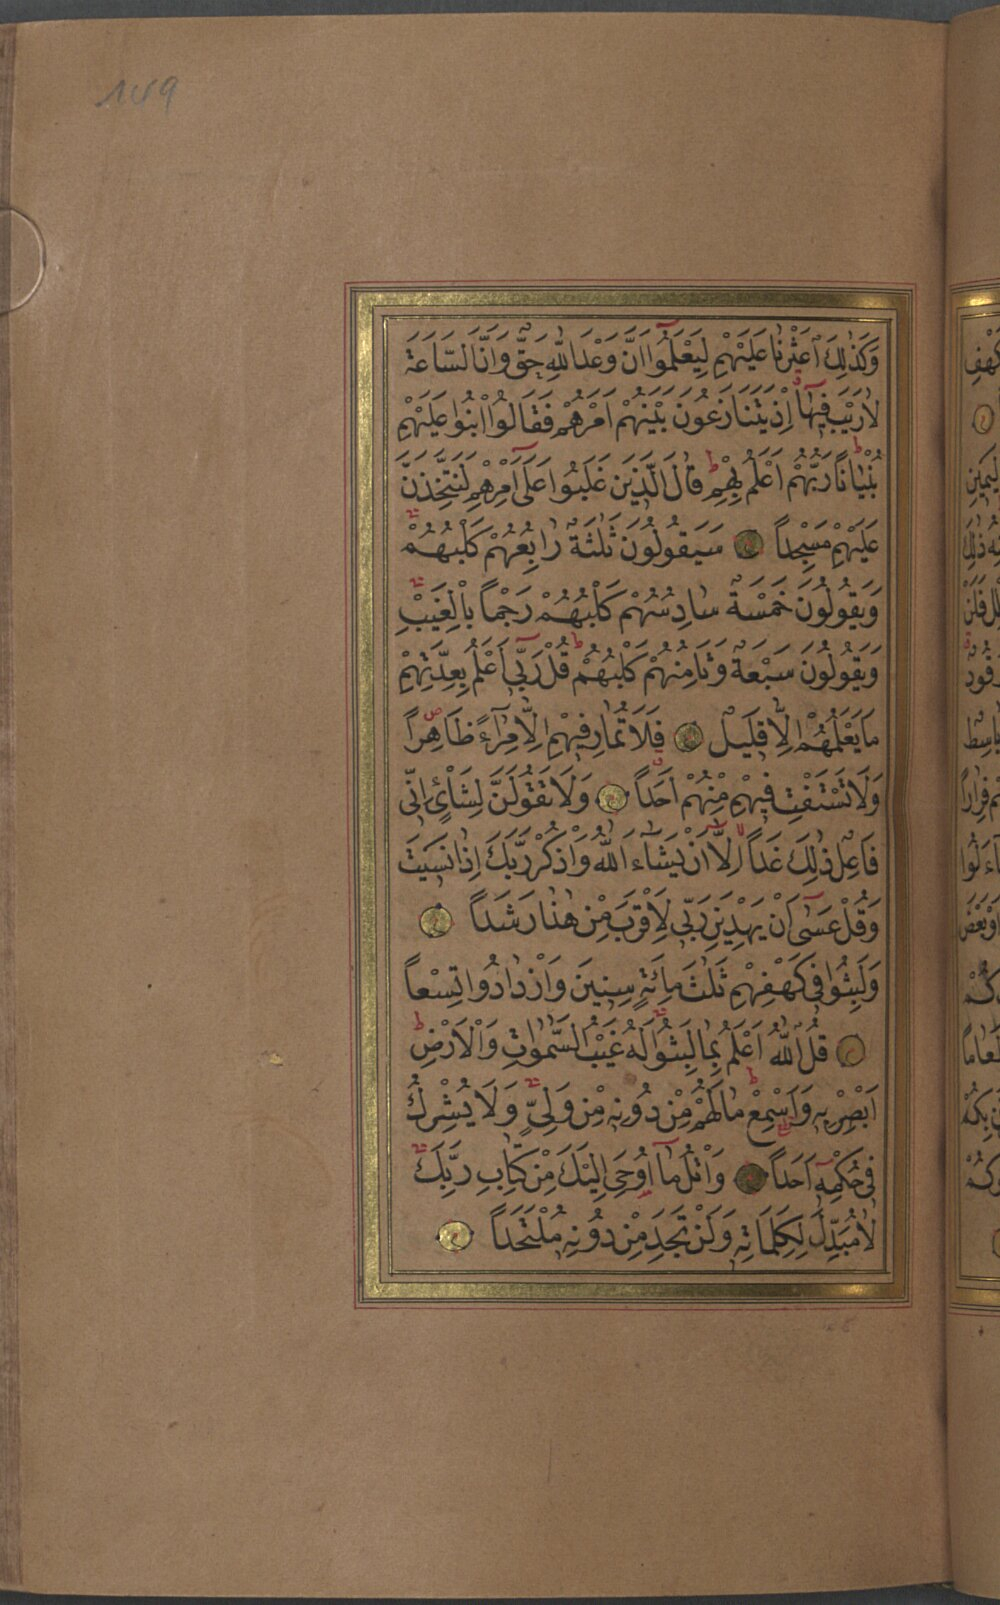 149
وَكَذٰلِكَ اَعْثَرْنَا عَلَيْهِمْ لِيَعْلَمُوا اَنَّ وَعْدَ اللّٰهِ حَقٌّ وَاَنَّ السَّاعَةَ
لَا رَيْبَ فِيهَا اِذْ يَتَنَازَعُونَ بَيْنَهُمْ اَمْرَهُمْ فَقَالُوا ابْنُوا عَلَيْهِمْ
بُنْيَانًا رَبُّهُمْ اَعْلَمُ بِهِمْ قَالَ الَّذِينَ غَلَبُوا عَلٰٓى اَمْرِهِمْ لَنَتَّخِذَنَّ
عَلَيْهِمْ مَسْجِدًا سَيَقُولُونَ ثَلٰثَةٌ رَابِعُهُمْ كَلْبُهُمْ
وَيَقُولُونَ خَمْسَةٌ سَادِسُهُمْ كَلْبُهُمْ رَجْمًا بِالْغَيْبِ
وَيَقُولُونَ سَبْعَةٌ وَثَامِنُهُمْ كَلْبُهُمْ قُلْ رَبِّٓى اَعْلَمُ بِعِدَّتِهِمْ
مَا يَعْلَمُهُمْ اِلَّا قَلِيلٌ فَلَا تُمَارِ فِيهِمْ اِلَّا مِرَآءً ظَاهِرًا
وَلَا تَسْتَفْتِ فِيهِمْ مِنْهُمْ اَحَدًا وَلَا تَقُولَنَّ لِشَاْىْءٍ اِنِّى
فَاعِلٌ ذٰلِكَ غَدًا اِلَّٓا اَنْ يَشَٓاءَ اللّٰهُ وَاذْكُرْ رَبَّكَ اِذَا نَسِيتَ
وَقُلْ عَسٰٓى اَنْ يَهْدِيَنِ رَبِّى لِاَقْرَبَ مِنْ هٰذَا رَشَدًا
وَلَبِثُوا فِى كَهْفِهِمْ ثَلٰثَ مِائَةٍ سِنِينَ وَازْدَادُوا تِسْعًا
قُلِ اللّٰهُ اَعْلَمُ بِمَا لَبِثُوا لَهُ غَيْبُ السَّمٰوَاتِ وَالْاَرْضِ
اَبْصِرْ بِهِ وَاَسْمِعْ مَا لَهُمْ مِنْ دُونِهِ مِنْ وَلِىٍّ وَلَا يُشْرِكُ
فِى حُكْمِهِ اَحَدًا وَاتْلُ مَٓا اُوحِىَ اِلَيْكَ مِنْ كِتَابِ رَبِّكَ
لَا مُبَدِّلَ لِكَلِمَاتِهِ وَلَنْ تَجِدَ مِنْ دُونِهِ مُلْتَحَدًا